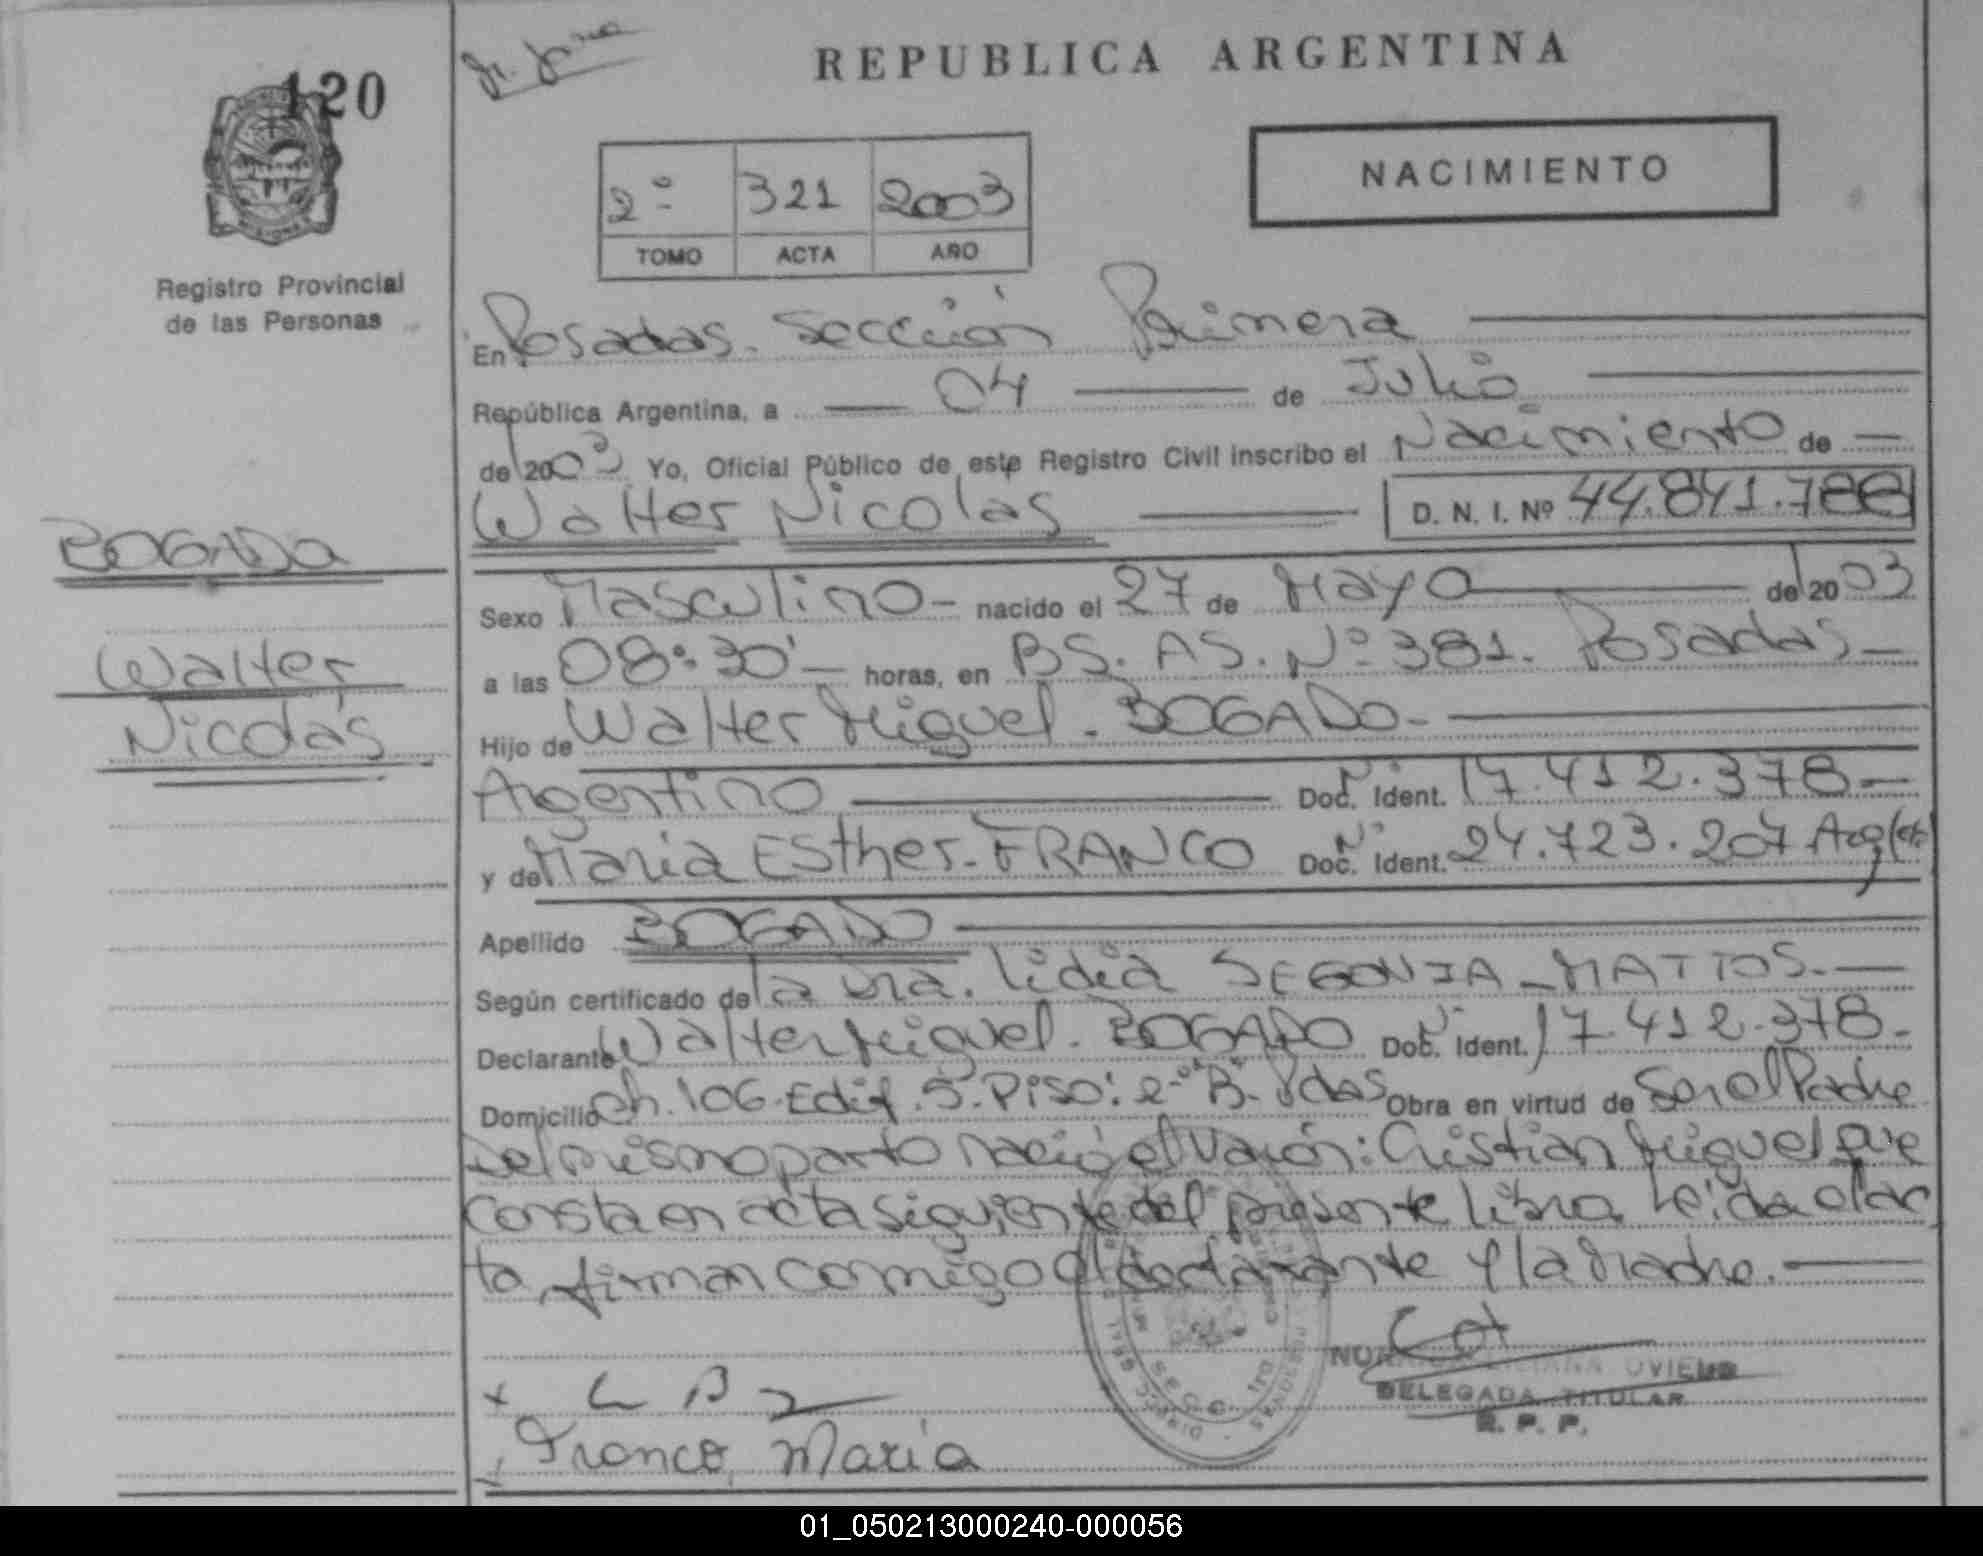 120
REPUBLICA ARGENTINA
NACIMIENTO
2º 321 2003
TOMO ACTA AÑO
Registro Provincial
de las Personas
En Posadas. Sección Primera
República Argentina, a 04 de Julio
de 2003 Yo, Oficial Público de este Registro Civil inscribo el Nacimiento de
Walter Nicolás D. N. I. Nº 44.841.788
BOGADO
Walter
Nicolás
Sexo Masculino - nacido el 27 de Mayo de 2003
a las 08:30' horas, en BS. AS. Nº 381. Posadas
Hijo de Walter Miguel. BOGADO
Argentino Doc. Ident. Nº 17.412.378
y de María Esther. FRANCO Doc. Ident. Nº 24.723.207
Apellido BOGADO
Según certificado de la Lidia SEGOVIA - MATTOS.
Declarante Walter Miguel. BOGADO Doc. Ident. Nº 17.412.378.
Domicilio Ch. 106. Edif. 5. Piso: 2º "B". Pdas Obra en virtud de Ser el Padre
Del mismo parto nació el varón: Cristian Miguel que
consta en acta siguiente del presente libro. Leída el ac
ta, firman conmigo el declarante y la Madre.
OVIEDO
DELEGADA TITULAR
R. P. P.
Franco, Maria
01_050213000240-000056